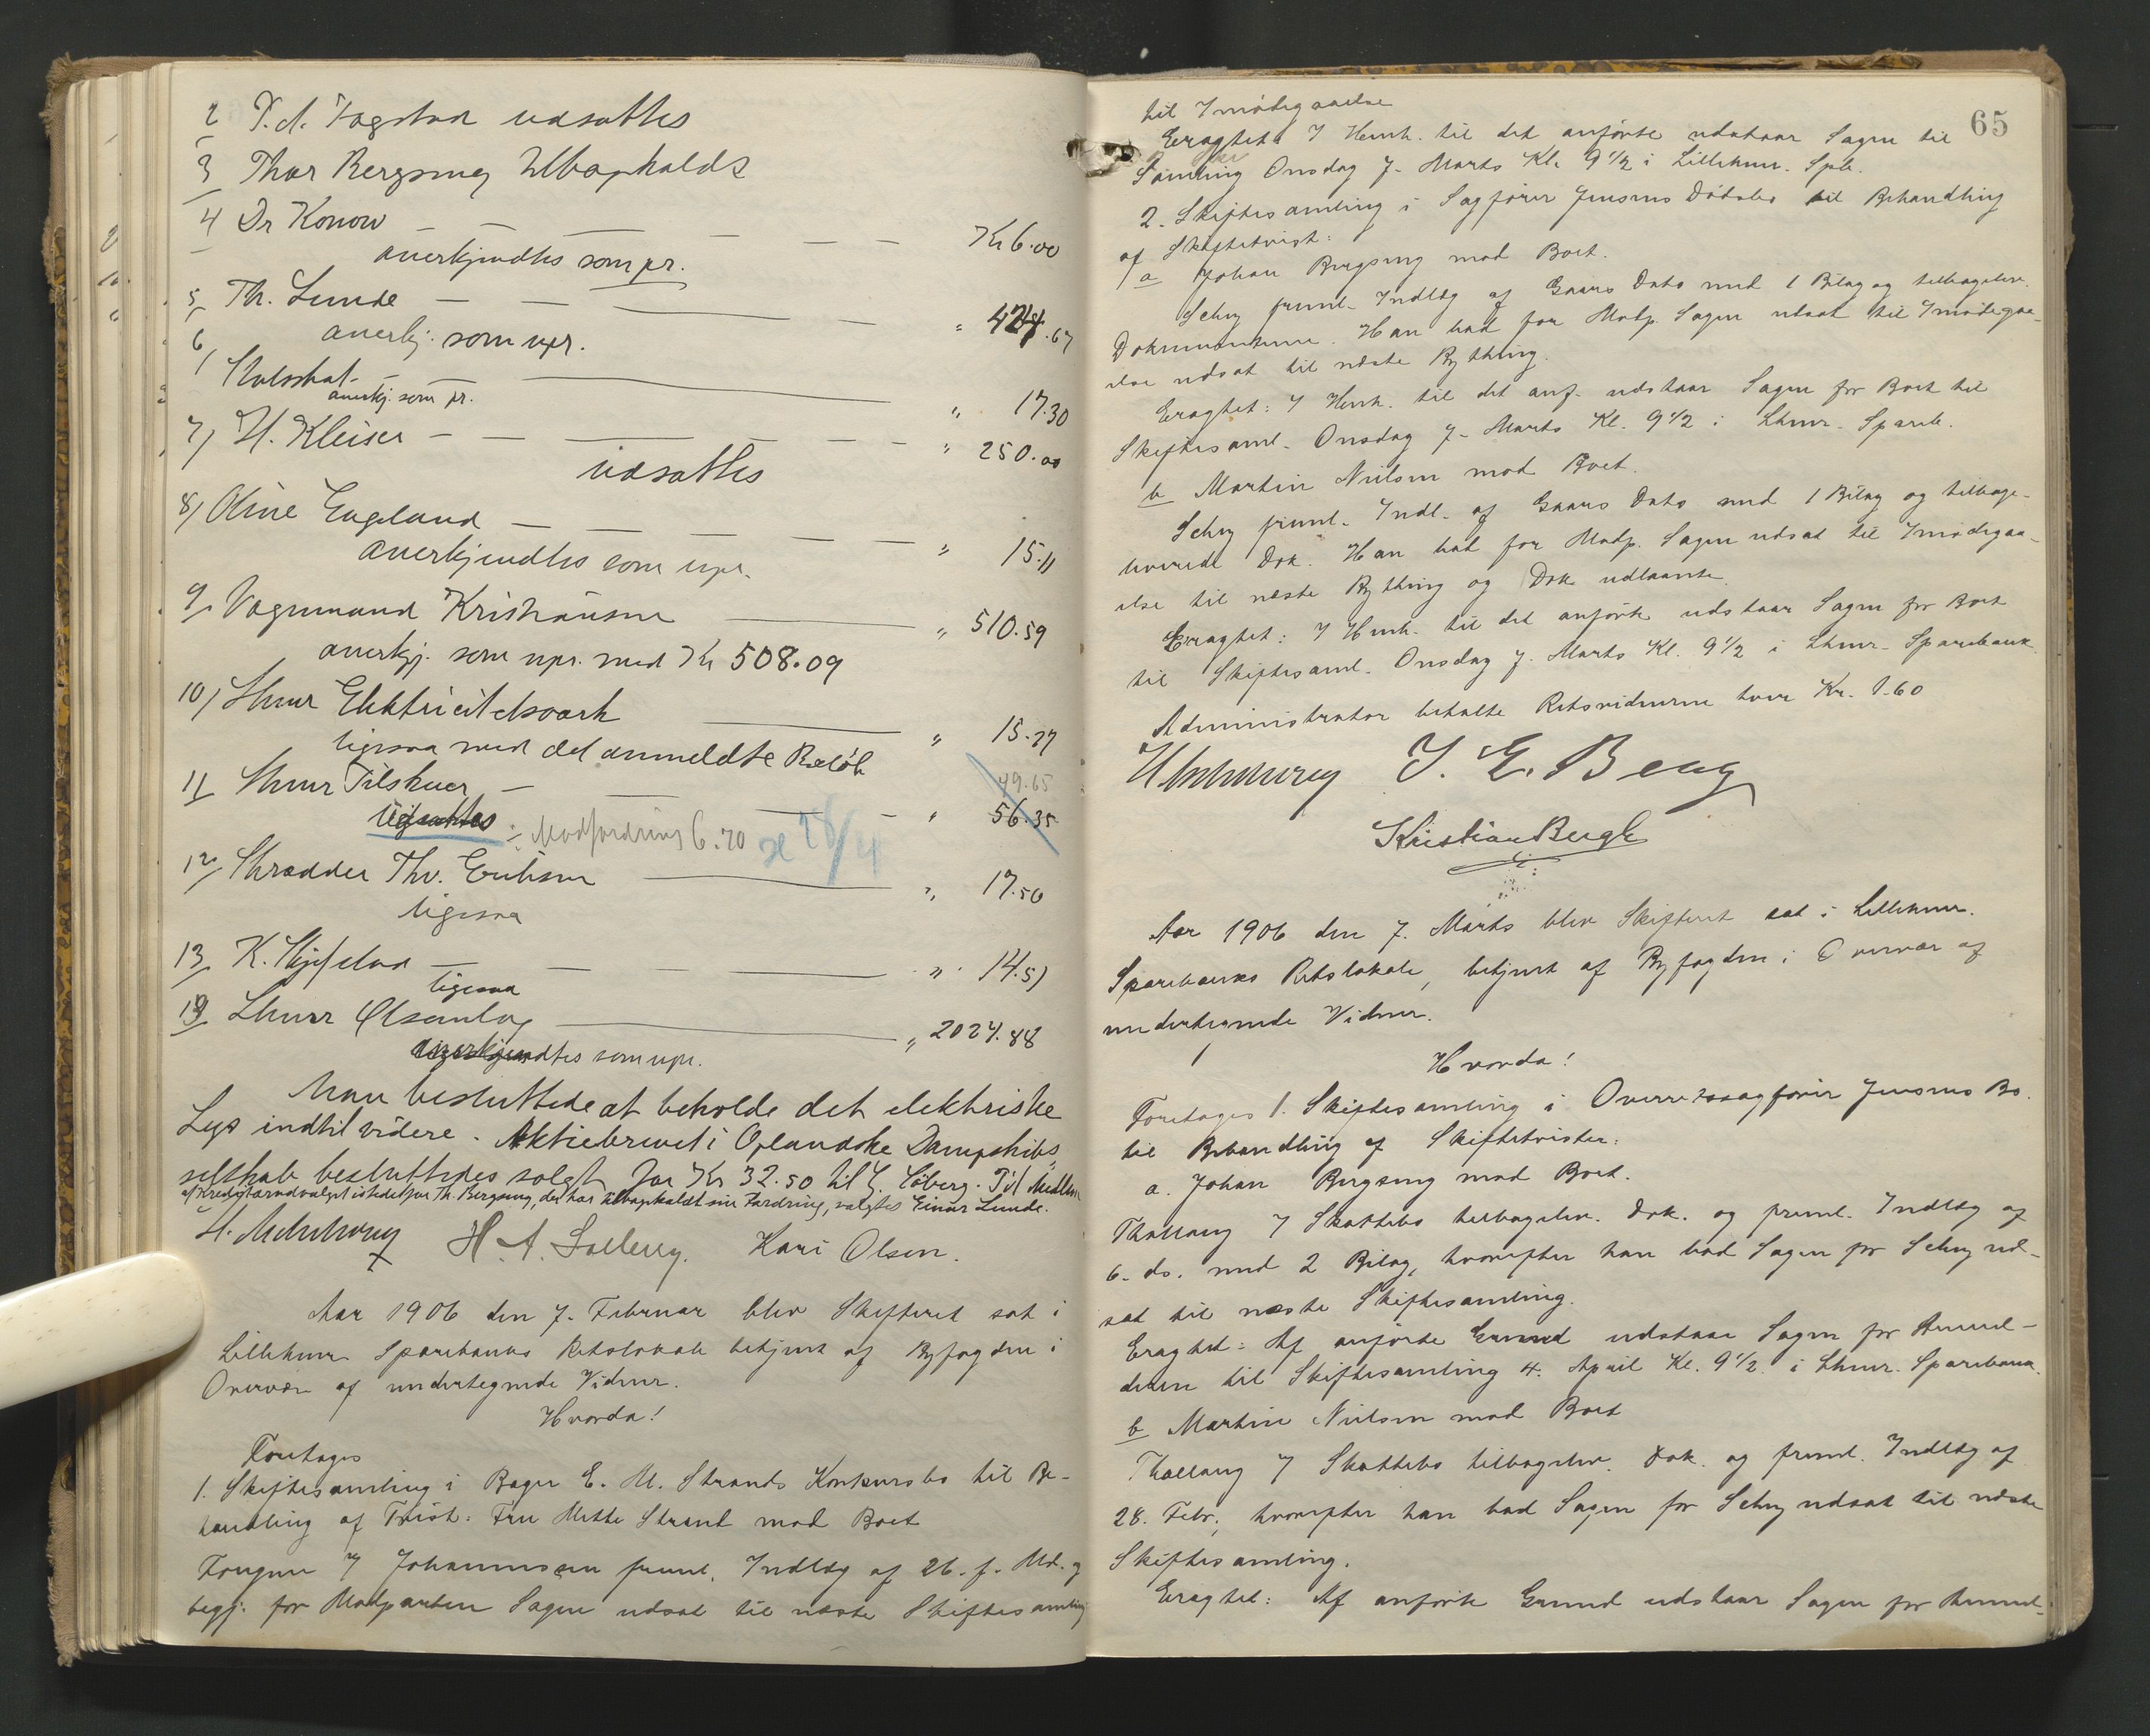 2 P. A. Fagstad udsattes
3 Thor Bergseng tilbagekaldt
4 Dr Konow — — — — — — Kr 6.00
anerkjendtes som pr.
5, Th. Lunde — — — — " 424.67
anerkj. som upr.
6, Statsskat — — — " 17.30
anerkj. som pr.
7, H. Kleiser — — — — — — " 250.00
udsattes
8, Oline Engeland — — — — — " 15.11
anerkjendtes som upr.
9, Vognmand Kristiansen — " 510.59
anerkj. som upr. med Kr 508.09
10, Lhmr Elektricitetsværk — " 15.27
ligesaa med det anmeldte Beløb
49.65
11 Lhmr Tilskuer — — — — " 56.35
udsattes ÷ Modfordring 6.70 28/4
12, Skrædder Thv. Eriksen — " 17.50
ligesaa
13, K. — — — " 14.51
ligesaa
14, Lhmr Ølsamlag — " 2024.88
anerkjendtes som upr.
Man besluttede at beholde det elektriske
Lys indtil videre. Aktiebrevet i Oplandske Dampskibs-
selskab besluttedes solgt for Kr 32.50 til Løberg. Til Medlem
af Kreditorudvalget istedetfor Th. Bergseng, der har tilbagekaldt sin Fordring, valgtes Einar Lunde.
H. A. Solberg. Kari Olsen.
Aar 1906 den 7. Februar blev Skifteret sat i
Lillehmr Sparebanks Retslokale betjent af Byfogden i
Overvær af undertegnede Vidner.
Hvorda!
Foretages
1. Skiftesamling i Bager E. M. Strands Konkursbo til Be-
handling af Tvist: Fru Mette Strand mod Boet
Fougner f Johannessen freml. Indlæg af 26. f. Md. og
begj. for Modparten Sagen udsat til næste Skiftesamling
65
til Imødegaaelse
Eragtet: I Henh. til det anførte udstaar Sagen til
Samling Onsdag 7. Marts Kl. 9 1/2 i Lillehmr. Spb.
2. Skiftesamling i Sagfører Jensens Dødsbo til Behandling
af Skiftetvist:
a Johan Bergseng mod Boet.
Schey freml. Indlæg af Gaars Dato med 1 Bilag og tilbagelev.
Dokumenterne. Han bad for Modp. Sagen udsat til Imødegaa-
else udsat til næste Bything.
Eragtet: I Henh. til det anf. udstaar Sagen for Boet til
Skiftesaml. Onsdag 7. Marts Kl. 9 1/2 i Lhmr. Spareb.
b Martin Nielsen mod Boet.
Schey freml. Indl. af Gaars Dato med 1 Bilag og tilbage-
leverede Dok. Han bad for Modp. Sagen udsat til Imødegaa-
else til næste Bything og Dok. udlaante.
Eragtet: I Henh. til det anførte udstaar Sagen for Boet
til Skiftesaml. Onsdag 7. Marts Kl. 9 1/2 i Lhmr. Sparebank.
Administrator betalte Retsvidnerne hver Kr. 1.60
J. E. Berg
Kristian Bergh
Aar 1906 den 7. Marts blev Skifteret sat i Lillehmr.
Sparebanks Retslokale, betjent af Byfogden i Overvær af
undertegnede Vidner.
Hvorda!
Foretages 1. Skiftesamling i Overretssagfører Jensens Bo
til Behandling af Skiftetvister:
a. Johan Bergseng mod Boet.
Thallaug f Skattebo tilbagelev. Dok. og freml. Indlæg af
6. ds. med 2 Bilag, hvorefter han bad Sagen for Schey ud-
sat til næste Skiftesamling.
Eragtet: Af anførte Grund udstaar Sagen for Anmel-
deren til Skiftesamling 4. April Kl. 9 1/2 i Lhmr. Sparebank.
b Martin Nielsen mod Boet
Thallaug f Skattebo tilbagelev. Dok. og freml. Indlæg af
28. Febr., hvorefter han bad Sagen for Schey udsat til næste
Skiftesamling.
Eragtet: Af anførte Grund udstaar Sagen for Anmel-